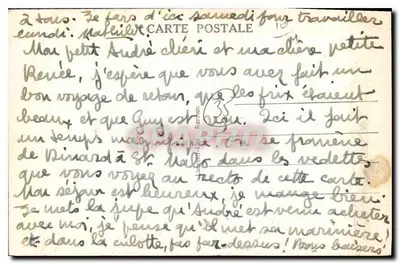 à tous. Je pars d'ici samedi pour travailler
lundi. Mathilde
CARTE POSTALE
Mon petit André chéri et ma chère petite
Renée, j'espère que vous avez fait un
bon voyage de retour, que les prix étaient
beaux et que Guy est Ici il fait
un temps magnifique on se promène
de Dinard à St. Malo dans les vedettes
que vous voyez au recto de cette carte.
Mon séjour est heureux, je mange bien.
Je mets la jupe qu'André est venu acheter
avec moi, je pense qu'il met sa marinière!
et dans la culotte, pas par-dessus! Bons baisers